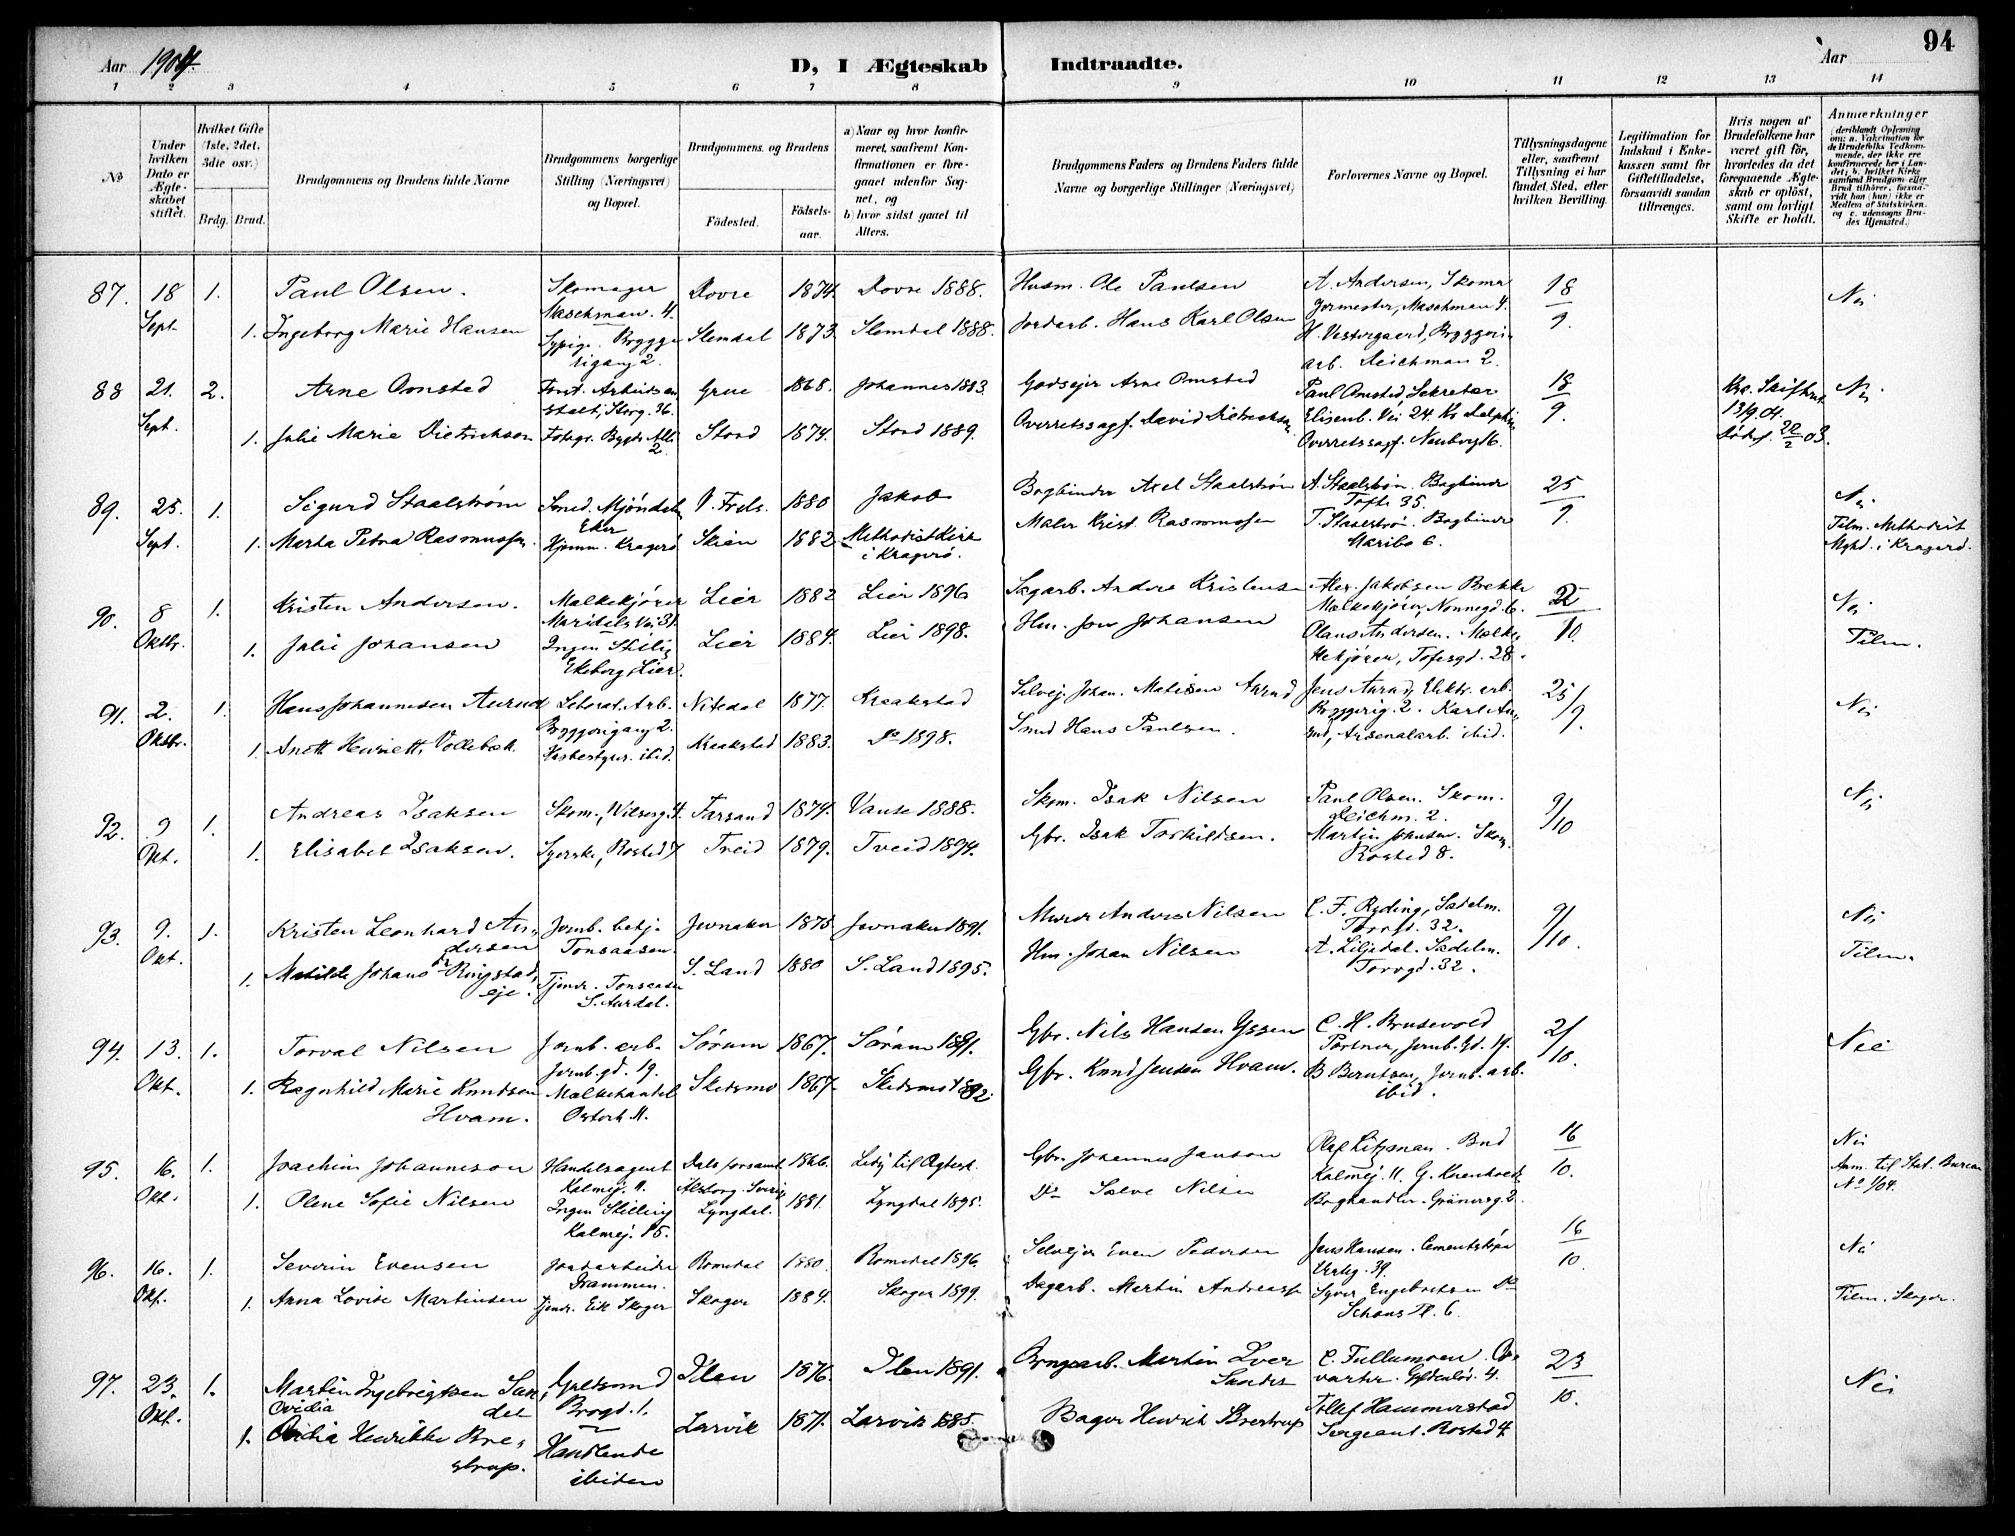 94
Aar 1904.
D, I Ægteskab Indtraadte.
Aar
1 2 3 4 5 6 7 8 9 10 11 12 13 14
No
Under hvilken Dato er Ægteskabet stiftet.
Hvilket Gifte (1ste, 2det, 3die osv.)
Brdg. Brud.
Brudgommens og Brudens fulde Navne
Brudgommens borgerlige Stilling (Næringsvei) og Bopæl.
Brudgommens og Brudens
Födested.
Födselsaar.
a) Naar og hvor konfirmeret, saafremt Konfirmationen er foregaaet udenfor Sognet, og
b) hvor sidst gaaet til Alters.
Brudgommens Faders og Brudens Faders fulde Navne og borgerlige Stillinger (Næringsvei)
Forlovernes Navne og Bopæl.
Tillysningsdagene eller, saafremt Tillysning ei har fundet Sted, efter hvilken Bevilling.
Legitimation for Indskud i Enkekassen samt for Giftetilladelse, forsaavidt saadan tiltrænges.
Hvis nogen af Brudefolkene har været gift för, hvorledes da det foregaaende Ægteskab er oplöst, samt om lovligt Skifte er holdt.
Anmærkninger
87. 18 Sept. 1. Paul Olsen. Skomager Maschman. 4. Dovre 1874. Dovre 1888. Husm. Ole Paulsen A. Andersen, Skomagermester, Maschman 4. 18/9. Nei
1. Ingeborg Marie Hansen Sypige. Bryggerigang 2. Slemdal 1873. Slemdal 1888. Jordarb. Hans Karl Olsen H. Vestergaard, Bryggeriarb. Deichman 2.
88 21. Sept. 2. Arne Omsted Forst. Arbeidsanstalt, Storg. 36. Grue 1868. Johannes 1883. Godseier Arne Omsted Paul Omsted, Sekretær Elisenb. Vei 24 18/9. Nei.
1. Julie Marie Dietrichson Stord 1874. Stord 1889. Overretssagf. David Dietrichson Overretssagf.
13/9 04. 22/2 03.
89. 25. Sept. 1. Sigurd Staalstrøm Smed. Mjøndalen Eker V. Freds. 1880 Jakob Bogbinder Axel Staalstrøm A. Staalstrøm. Bogbinder Tofte 35. 25/9. Nei
1. Marta Petra Rasmussen. Hjemm. Kragerø Skien 1882 Methodistkirk i Kragerø. Maler Krist. Rasmussen T. Staalstrøm. Bogbinder Maribo 6. Tilm. Methodist Mghd. i Kragerø.
90. 8 Oktbr. 1. Kristen Andersen. Mælkekjører Maridals Vei 31 Lier 1882 Lier 1896 Sagarb. Anders Kristensen Alex. Jakobsen Bække Mælkekjører, Nonnegd. 6. 2/10. Nei
1. Julie Johansen Ingen Stilling Ekeberg, Lier. Lier 1884. Lier 1898. Hm. Johansen Olaus Andersen. Mælkekjører, Toftesgd. 28. Tilm.
91. 2. Oktbr. 1. Hans Johannesen Aurud Laborat. Arb. Bryggerigang 2. Nitedal 1877. Kraakstad Selvej. Johan. Matisen Aurud Jens Aurud, Elektr. arb. Bryggerig. 2. Karl Aurud, Arsenalarb. ibid. 25/9. Nei
1. Anette Henriette Vollebæk ibid. Kraakstad 1883. Do 1898. Smed Hans Paulsen.
92. 9 Okt. 1. Andreas Isaksen Skom., Wilsesg. 4. Farsund 1874. Vanse 1888. Skom. Isak Nilsen Paul Olsen. Skom. Deichm. 2. 9/10 Nei
1. Elisabet Isaksen. Syerske, Rosted 7 Tveid 1879. Tveid 1894. Gbr. Isak Torkildsen. Martin Johnsen. Skom. Rosted 8.
93. 9. Okt. 1. Kristen Leonhard Andersen Jernb. betj. Tonsaasen. Jevnaker 1875 Jevnaker 1891. Murer Anders Nilsen C. F. Ryding, Sadelm. Torvgd. 32. 9/10. Nei
1. Matilde Johansdr Ringstadeje. Tjener. Tonsaasen S. Aurdal. S. Land 1880 S. Land 1895. Hm. Johan Nilsen A. Liljedal. Sadelm. Torvgd. 32. Tilm.
94. 13. Okt. 1. Torval Nilsen Jernb. arb. Jernb. gd. 19. Sørum 1867. Sørum 1881. Gbr. Nils Hansen Yssen C. H. Brusevold Portner, Jernb. gd. 19. 2/10. Nei
1. Ragnhild Marie Knudsen Hvam. Mælkehandel Skedsmo 1867. Skedsmo 1882. Gbr. Knud Jensen Hvam. B Berntsen, Jernb. arb. ibid.
95. 16. Okt. 1. Joachim Johanneson Handelsagent Kalmej. 11. Dals forsaml. Elfsborg. Sverige 1866. Gbr. Johannes Janson Olaf Litzman. Bud Kalmej. 11. 16/10. Nei
1. Olene Sofie Nilsen Ingen Stilling Kalmej. 15. Lyngdal. 1881 Lyngdal 1895. Do Salve Nilsen Boghandler. Grünersg. 2. Anm. til Stat. Bureau No 1/04.
96. 16. Okt. 1. Severin Evensen Jordarbeider Drammen. Romedal 1880. Romedal 1896. Selvejer Even Pedersen Jens Hansen. Cementstøber 39. 16/10. Nei
1. Anna Lovise Martinsen Tjener. Eik Skoger Skoger 1884. Skoger 1899. Dagarb. Martin Andreassen Syver Engebretsen Do Schous Pl. 6. Tilm. Skoger.
97. 23. Okt. 1. Martin Ingebrigtsen Sandet Guldsmed Brogd. 1. Ilen 1876. Ilen 1891. Brygearb. Martin Iver Sandet C. Gyldenløv. 4. 23/10. Nei
1. Ovidia Henrikke Brestrup. Handlende ibiden Larvik 1871. Larvik 1885. Bager Henrik Brestrup Hammerstad Sergeant. Rosted 4.